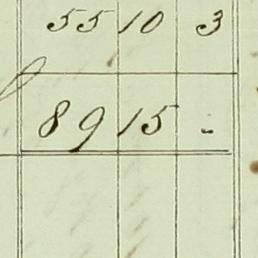 55 10 3
89 15 -